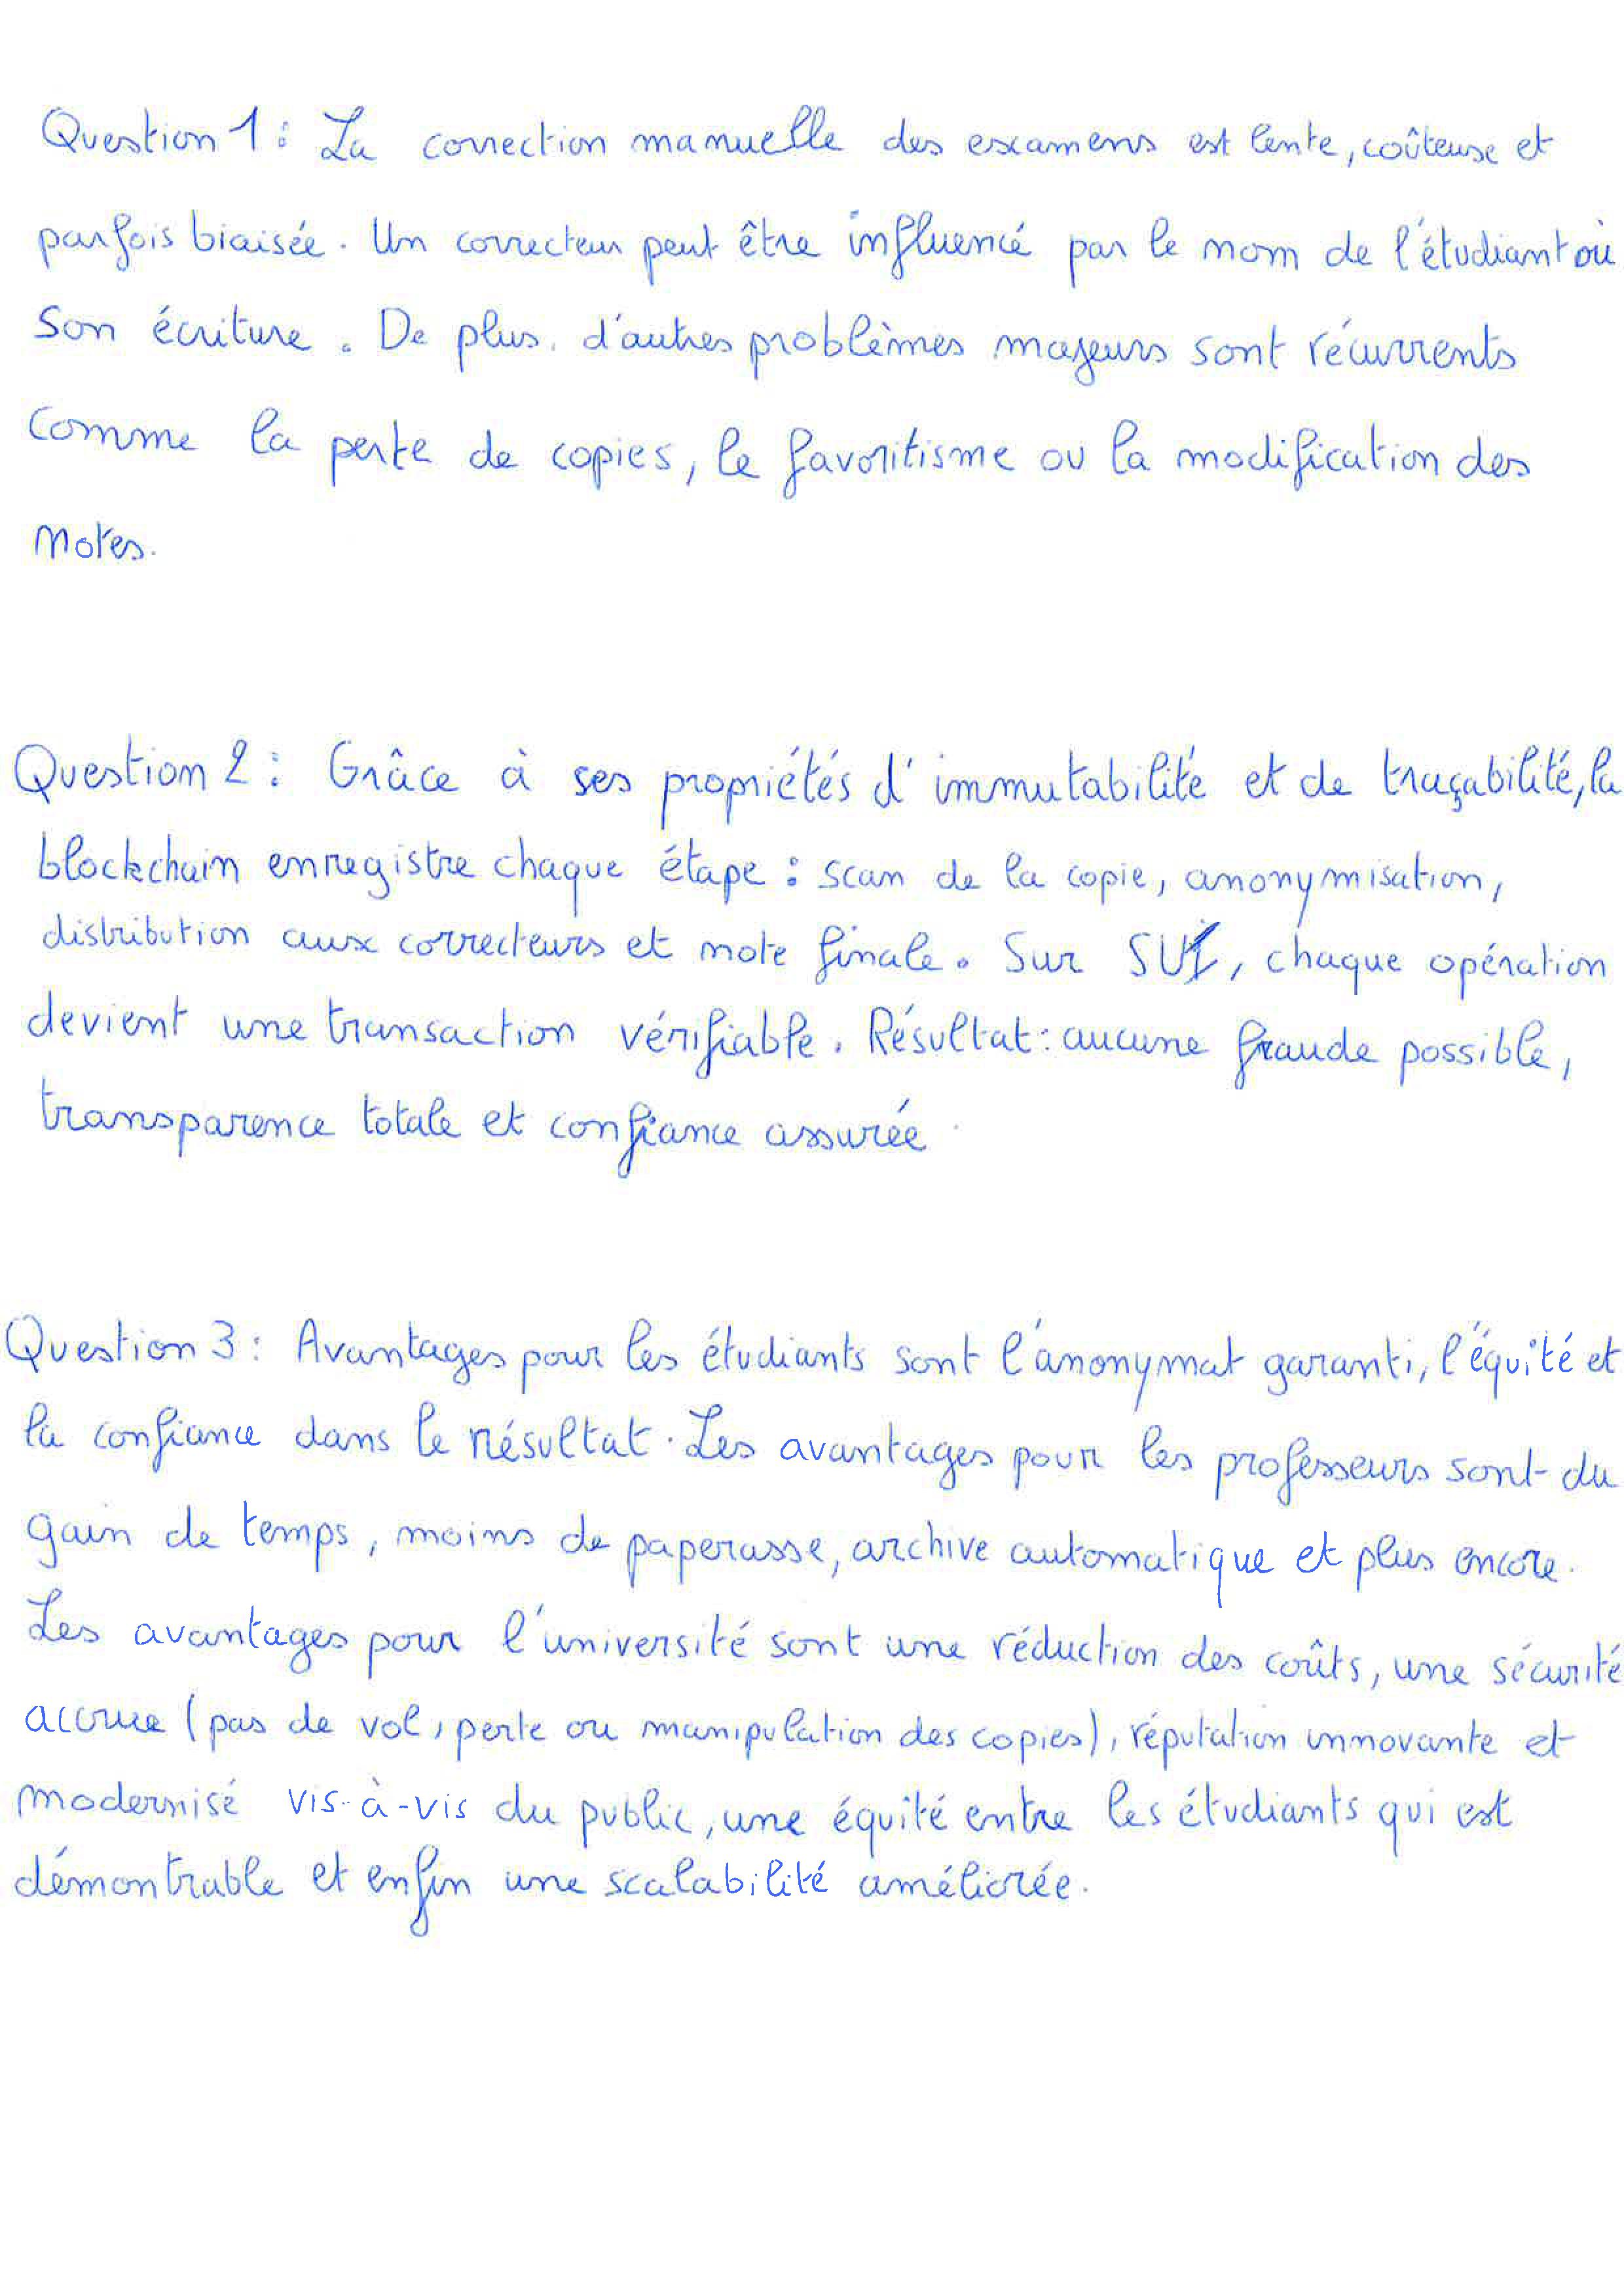 Question 1 : La correction manuelle des examens est lente, coûteuse et
parfois biaisée. Un correcteur peut être influencé par le nom de l'étudiant ou
son écriture. De plus, d'autres problèmes majeurs sont récurrents
comme la perte de copies, le favoritisme ou la modification des
notes.
Question 2 : Grâce à ses propriétés d'immutabilité et de traçabilité, la
blockchain enregistre chaque étape : scan de la copie, anonymisation,
distribution aux correcteurs et note finale. Sur SUI, chaque opération
devient une transaction vérifiable. Résultat : aucune fraude possible,
transparence totale et confiance assurée.
Question 3 : Avantages pour les étudiants sont l'anonymat garanti, l'équité et
la confiance dans le résultat. Les avantages pour les professeurs sont du
gain de temps, moins de paperasse, archive automatique et plus encore.
Les avantages pour l'université sont une réduction des coûts, une sécurité
accrue (pas de vol, perte ou manipulation des copies), réputation innovante et
modernisé vis-à-vis du public, une équité entre les étudiants qui est
démontrable et enfin une scalabilité améliorée.